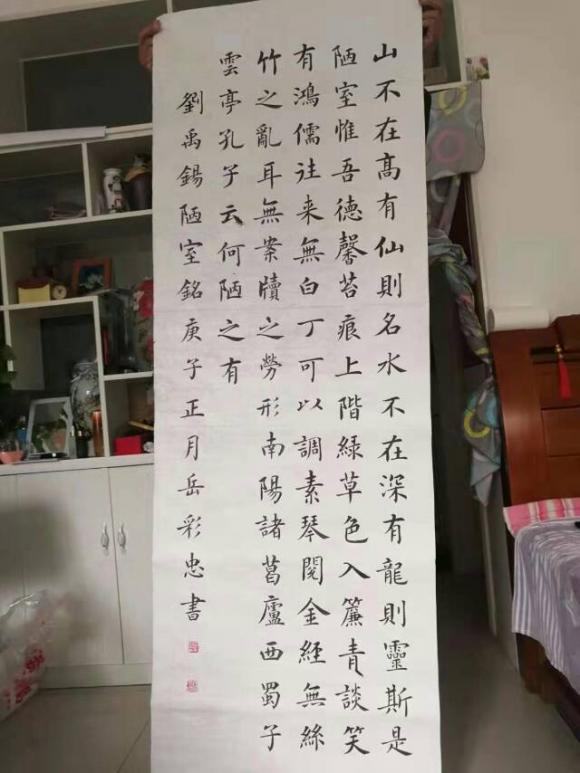 山不在高有仙則名水不在深有龍則靈斯是
陋室惟吾德馨苔痕上階綠草色入簾青談笑
有鴻儒往来無白丁可以調素琴閱金經無絲
竹之亂耳無案牘之勞形南陽諸葛廬西蜀子
雲亭孔子云何陋之有
劉禹錫陋室銘庚子正月岳彩忠書